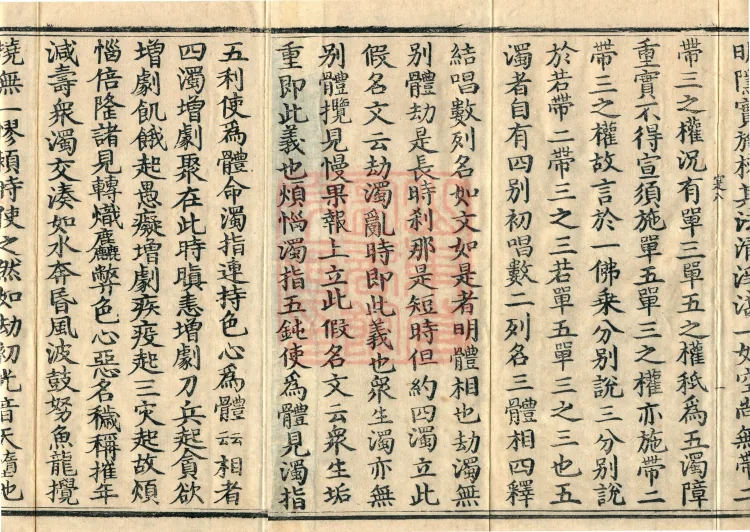 帶三之權況有單三單五之權秖為五濁障
重實不得宣須施單五單三之權亦施帶二
帶三之權故言於一佛乘分別說三分別說
於若帶二帶三之三若單五單三之三也五
濁者自有四別初唱數二列名三體相四釋
結唱數列名如文如是者明體相也劫濁無
別體劫是長時剎那是短時但約四濁立此
假名文云劫濁亂時即此義也衆生濁亦無
別體攬見慢果報上立此假名文云衆生垢
重即此義也煩惱濁指五鈍使為體見濁指
五利使為體命濁指連持色心為體云相者
四濁增劇聚在此時瞋恚增劇刀兵起貪欲
增劇飢餓起愚癡增劇疾疫起三灾起故煩
惱倍隆諸見轉熾麤弊色心惡名穢稱摧年
減壽衆濁交湊如水奔昏風波鼓努魚龍攪
撓無一憀頼時使之然如劫初光音天墮地